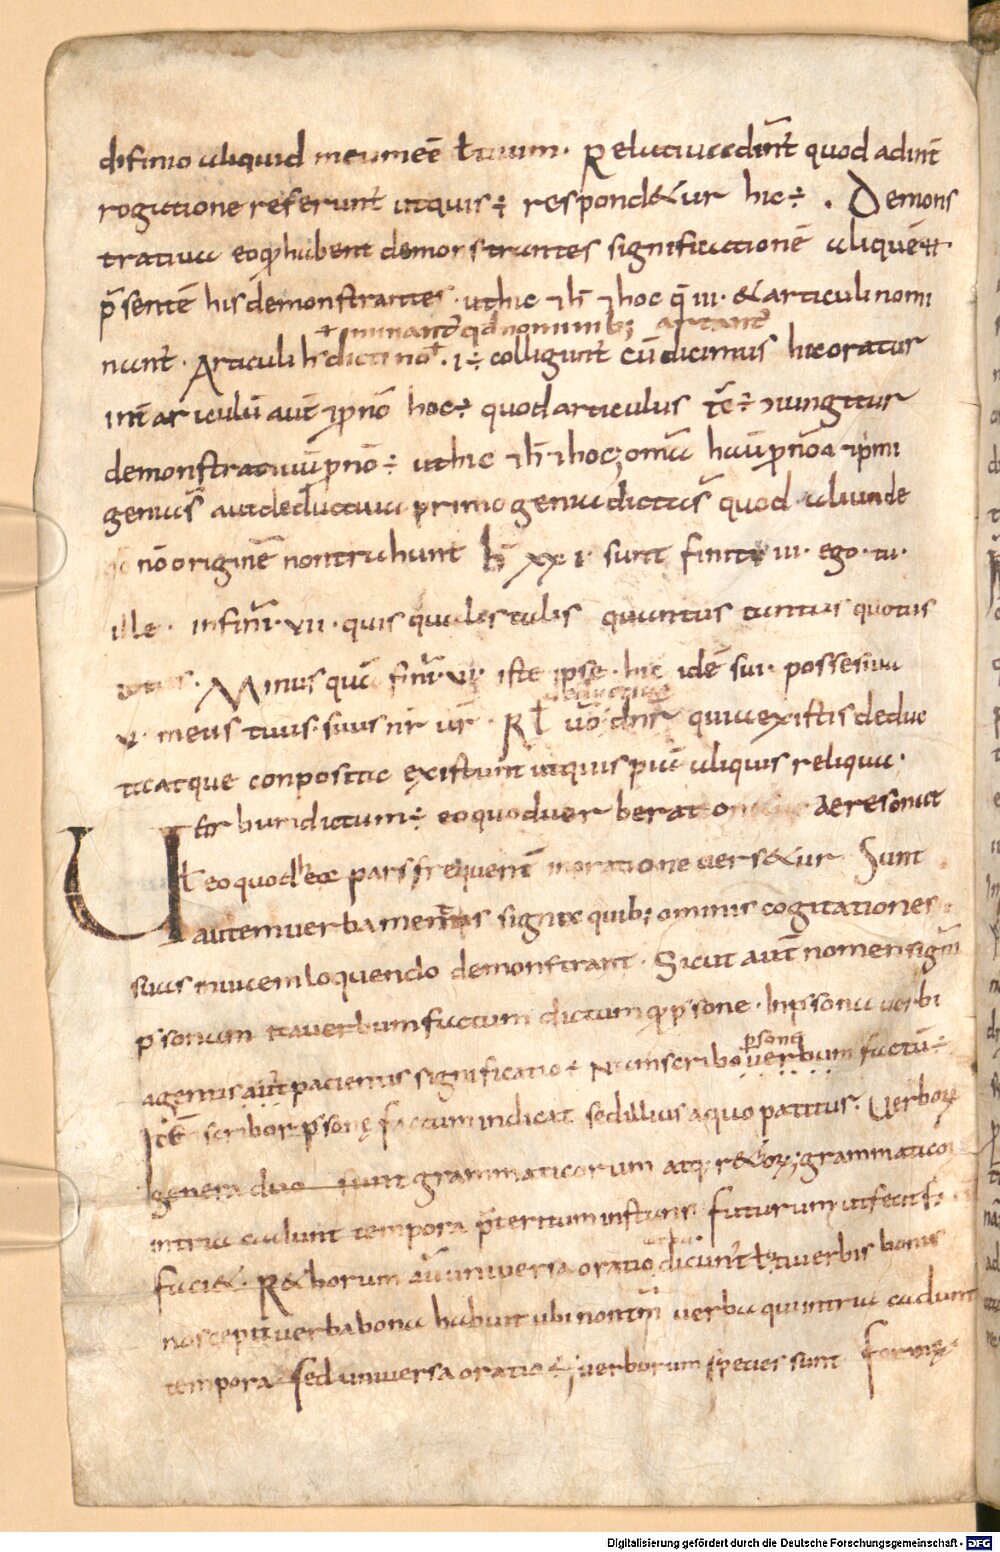 difinio aliquid meum eē ł tuum. Relatiua cđ dinr̄t quod adint̄
rogatione referunt̄ ut quis ÷ respond&ur hic ÷ . Demons
tratiua eo ꝙ habent demonstrantes significationē aliquē
p̄sentē his demonstrantes. ut hic ⁊ h̄ ⁊ hoc q̄ iii. & articuli nomi
÷ iunant̄ qđ nominib; artant̄
nant̄. Articuli h̄ dicti
colligunt̄ cū dicimus hic orator
hoc ÷ quod articulus iungitur
demonstratiuū ꝓnō ÷ ut hic ⁊ h̄ ⁊ hoc;
aut deductiua primogenia dicta s̄ quod aliunde
nō originē non trahunt h̄ xxi sunt finita iii. ego. tu.
ille. infini. vii. quis qualis talis quantus tantus quotus
Minus quā fini. vi. iste ipse. hic idē sui. possesiua
v. meus tuus. suus nr̄ ur̄. Rł uō dnr̄ quia existis deduc
tic atque conpositae existunt ut quis puta aliquis reliqua.
Uerbum dictum ÷ eo quod uerberato aere sonat
ł eo quod hec pars frequent̄ in oratione uers&ur Sunt
autem uerba mentis signa quib; omnis cogitationes
suas inuicem loquendo demonstrant. Sicut aut̄ nomen sign̄
p̱sonam ita uerbum factum dictum q; p̱sone. In p̱sona uerbi
p̱sonę
agentis aut̄ pacientis significatio ÷ Nam scribo uerbum factū ÷
Itē scribor p̱sonę factum indicat sed illius a quo patitur. Uerboꝝ
genera duo sunt grammaticorum atq; r&hoꝝ; grammaticoꝝ
in tria cadunt tempora p̄teritum instans futurum ut fecit f;
uerba
faci&. R&horum aū uniuersa oratio dicunt̄ ł uerbis bonis
nos cepit uerba bona habuit ubi non tm̄ uerba qui in tria cadunt
tempora sed uniuersa oratio ÷; uerborum species sunt formę